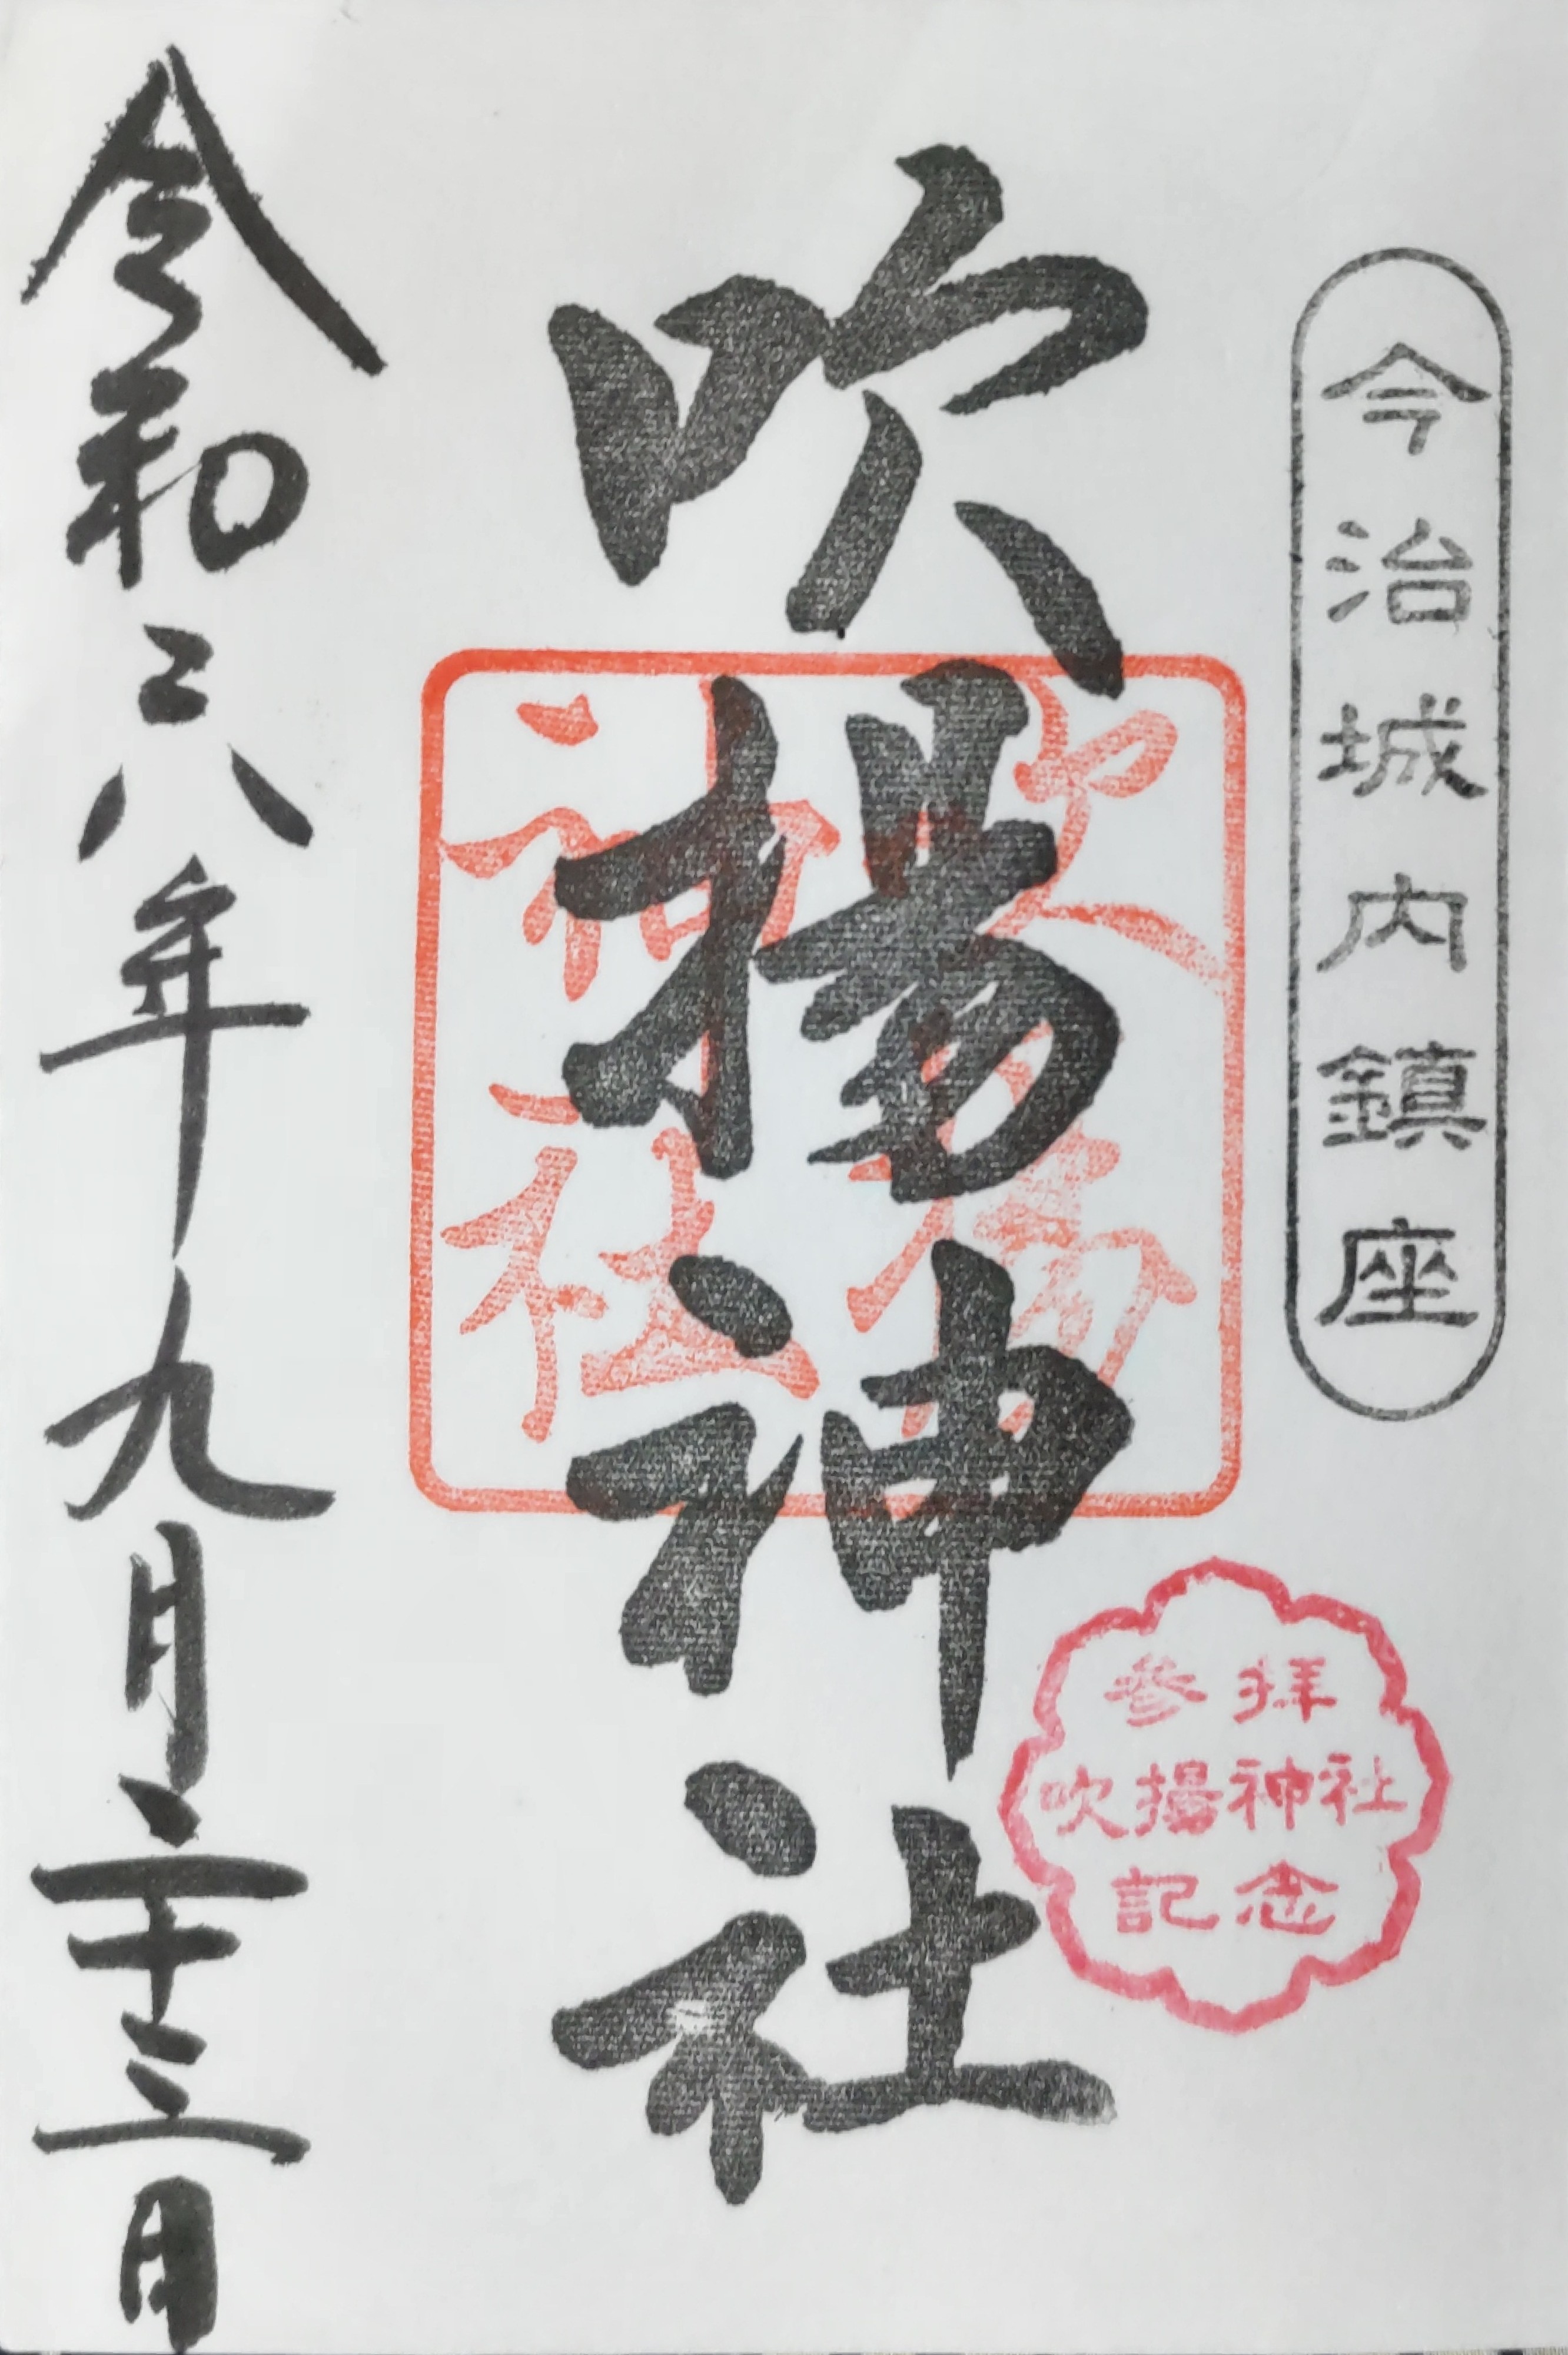 今治城内鎮座
吹揚神社
吹揚
神社
参拝
吹揚神社
記念
令和六年九月二十三日